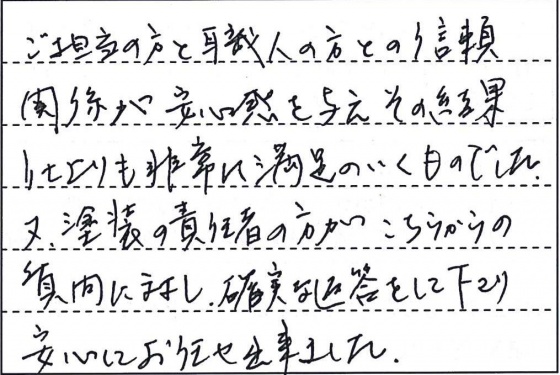 ご担当の方と職人の方との信頼
関係が安心感を与えその結果
仕上りも非常に満足のいくものでした。
又、塗装の責任者の方がこちらからの
質問に対し、確実な返答をして下さり
安心してお任せ出来ました。